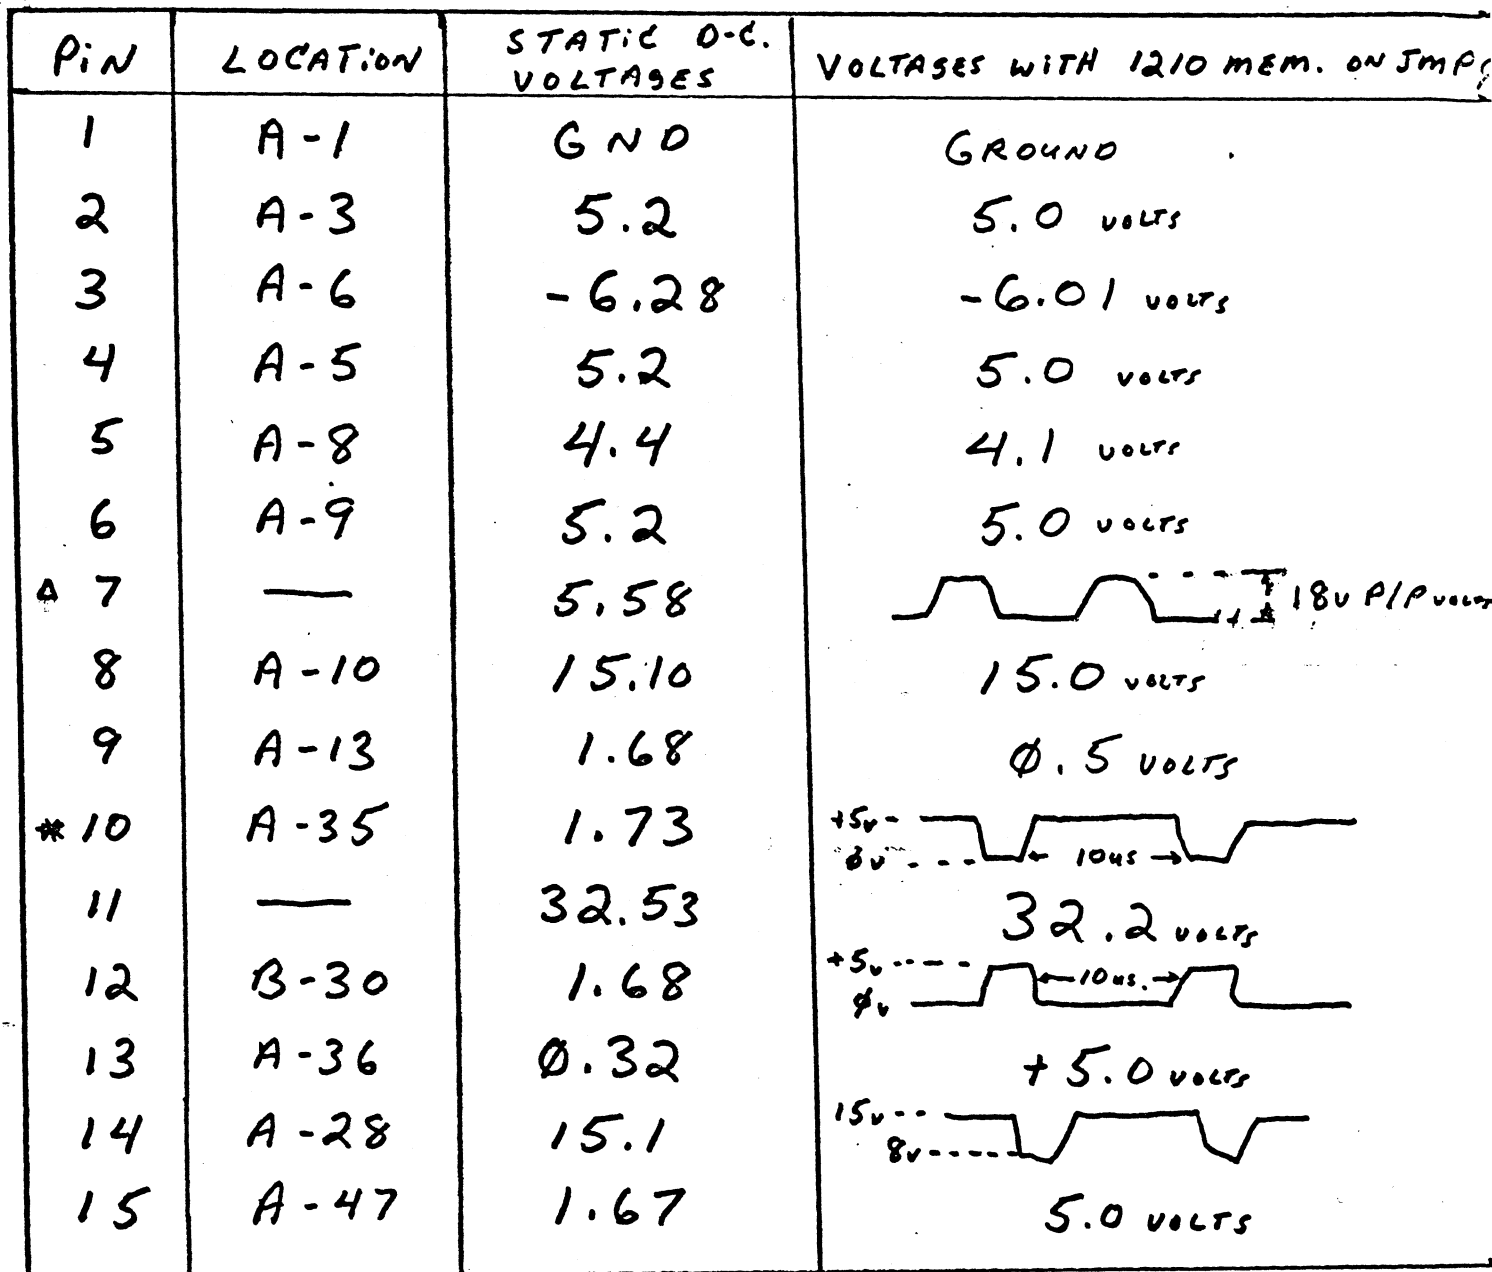 PiN LOCATiON STATiC D-C. VOLTAGES VOLTAGES WiTH 1210 MEM. ON JMP
1 A-1 GND GROUND
2 A-3 5.2 5.0 VOLTS
3 A-6 -6.28 -6.01 VOLTS
4 A-5 5.2 5.0 VOLTS
5 A-8 4.4 4.1 VOLTS
6 A-9 5.2 5.0 VOLTS
Δ 7 — 5.58 18v P/P VOLTS
8 A-10 15.10 15.0 VOLTS
9 A-13 1.68 Ø.5 VOLTS
* 10 A-35 1.73 +5v Øv 10us
11 — 32.53 32.2 VOLTS
12 B-30 1.68 +5v Øv 10us.
13 A-36 Ø.32 +5.0 VOLTS
14 A-28 15.1 15v 8v
15 A-47 1.67 5.0 VOLTS